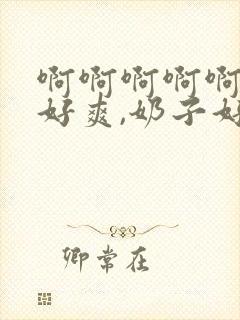 啊啊啊啊啊
好爽,奶子好
卿常在